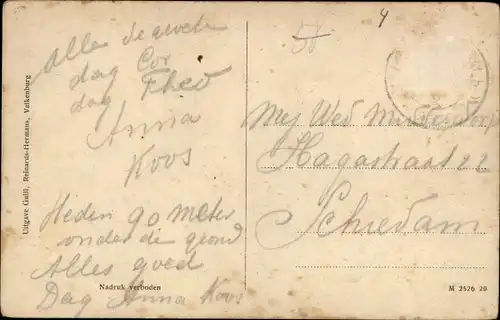 Alle de groeten
dag Cor
dag Theo
Anna
Koos
Heden 90 meter
onder de grond
Alles goed
Dag Anna Koos
Nadruk verboden
Uitgave Guill. Reinards-Hermans, Valkenburg
Mej Wed
Hagastraat 22
Schiedam
M 2526 20